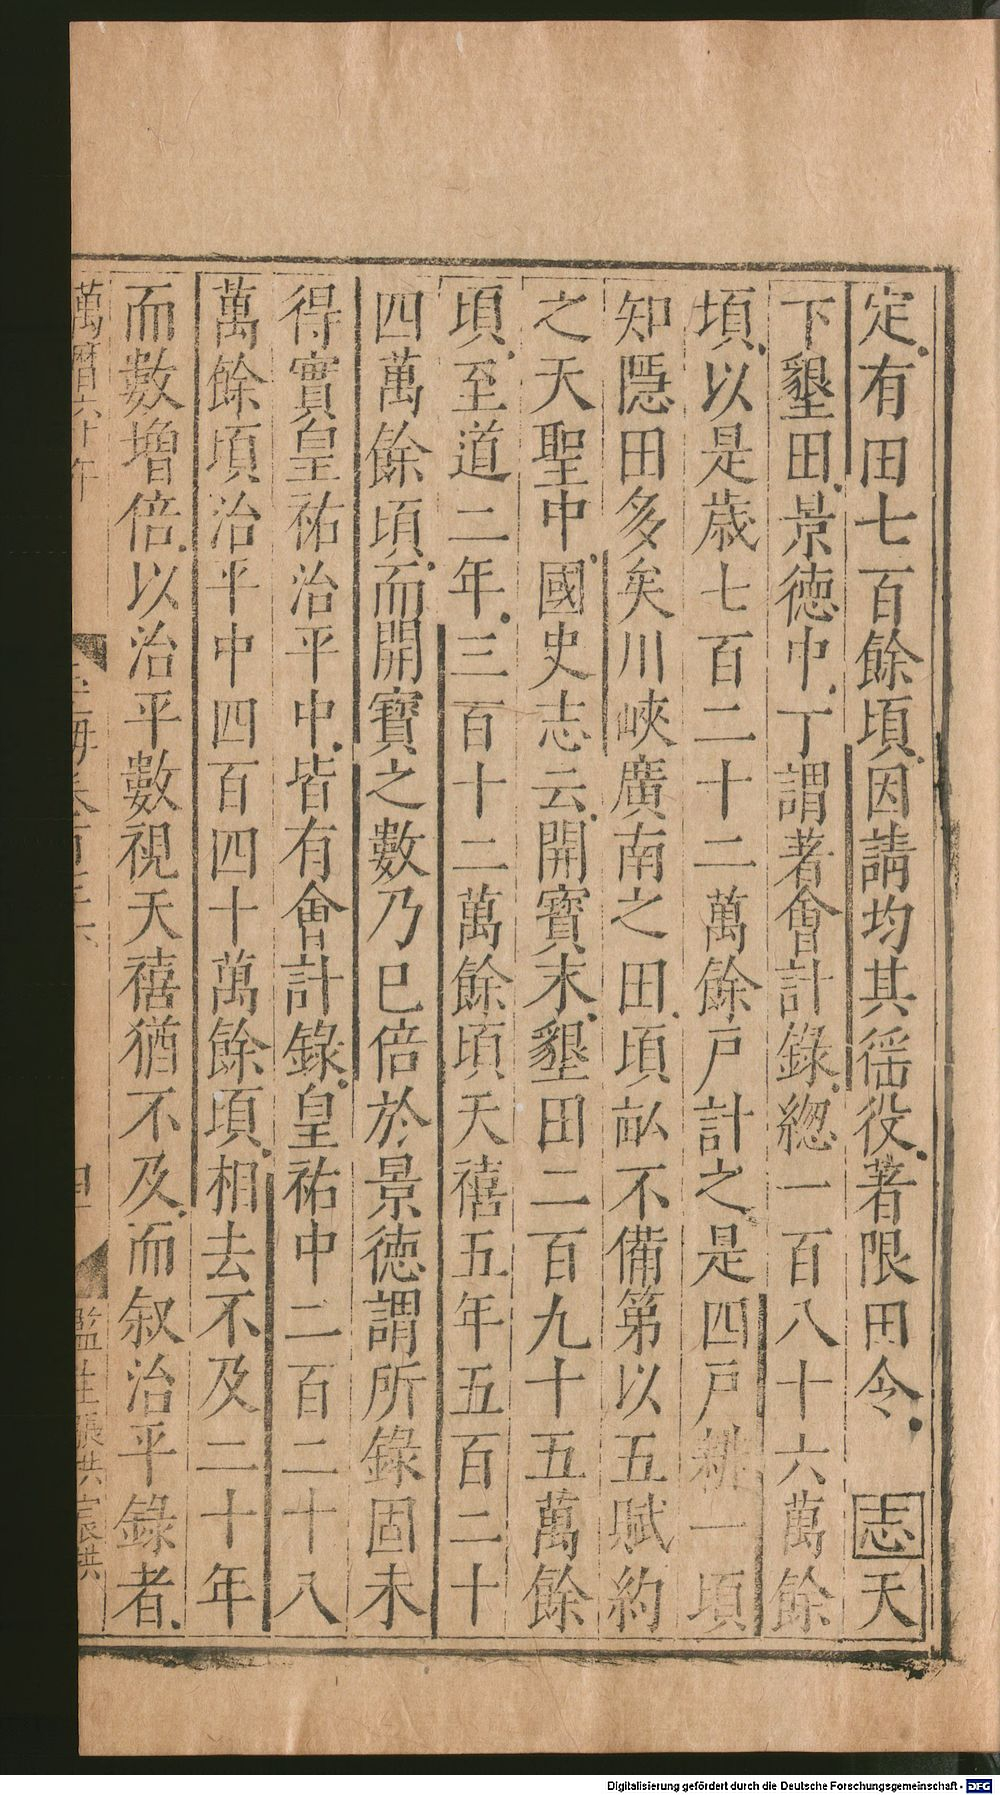 定有田七百餘頃因請均其徭役著限田令志天
下墾田景徳中丁謂著會計錄緫一百八十六萬餘
頃以是歳七百二十二萬餘戶計之是四戶耕一頃
知隱田多矣川峽廣南之田頃畝不備第以五賦約
之天聖中國史志云開寶末墾田二百九十五萬餘
頃至道二年三百十二萬餘頃天禧五年五百二十
四萬餘頃而開寶之數乃巳倍於景徳謂所錄固未
得實皇祐治平中皆有會計錄皇祐中二百二十八
萬餘頃治平中四百四十萬餘頃相去不及二十年
而數増倍以治平數視天禧猶不及而叙治平錄者
萬曆六十年
監生張洪宸洪
Digitalisierung gefördert durch die Deutsche Forschungsgemeinschaft - DFG